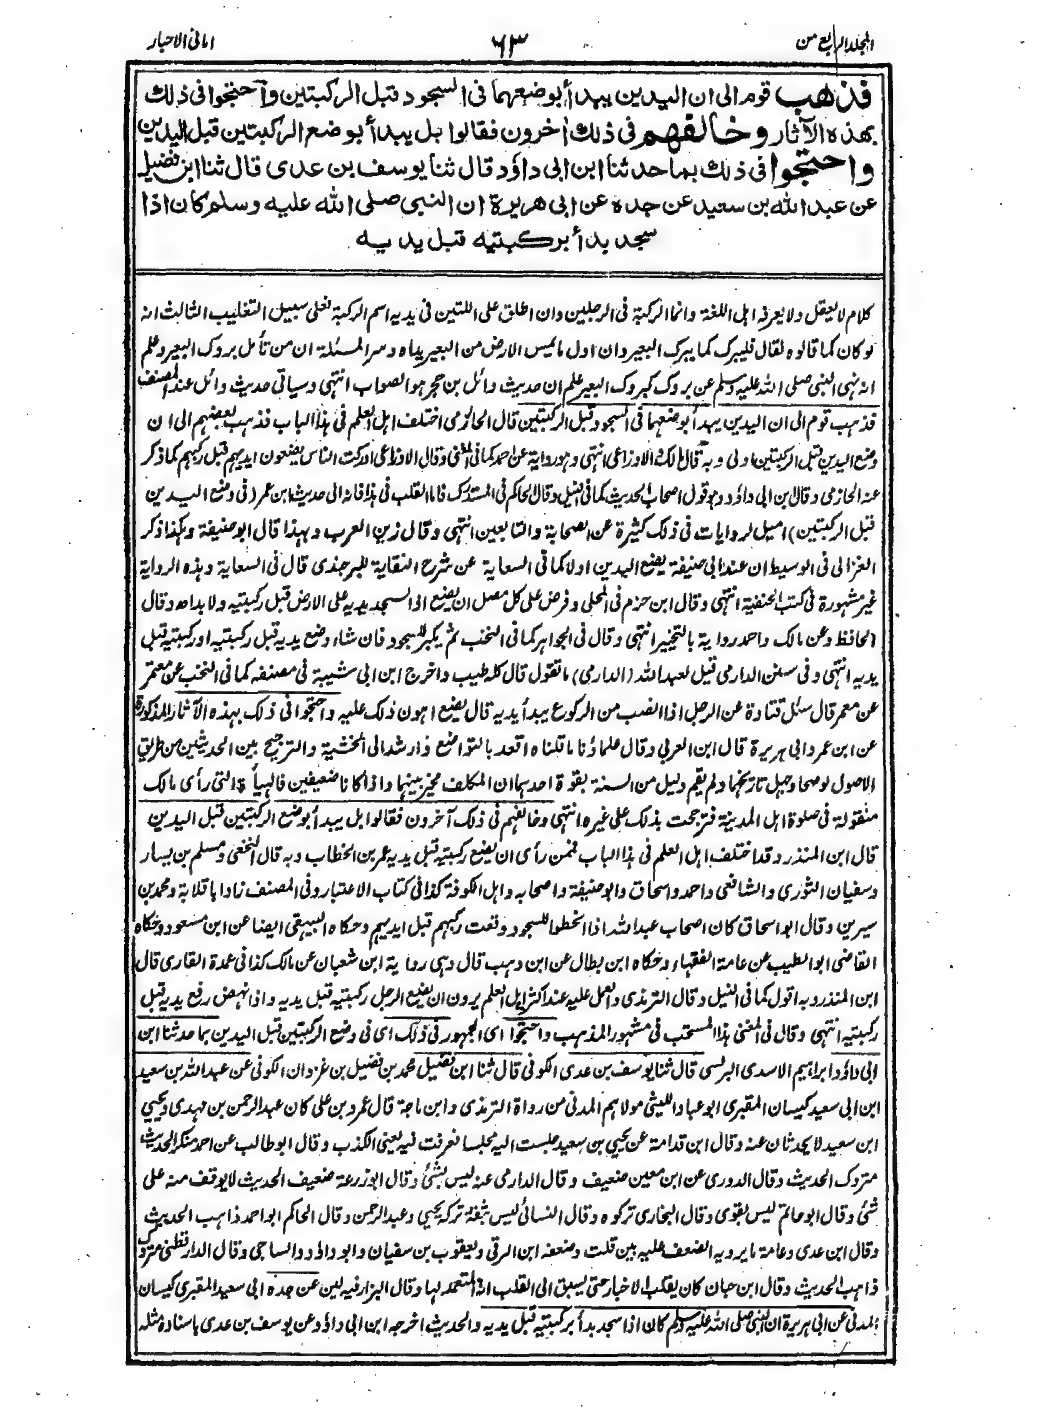 المجلد الرابع من
٦٣
امانى الاحبار
فذهب قوم الى ان اليدين يبدأ بوضعهما فى السجود قبل الركبتين واحتجوا فى ذلك
بهذه الآثار وخالفهم فى ذلك اٰخرون فقالوا بل يبدأ بوضع الركبتين قبل اليدين
واحتجوا فى ذلك بما حدثنا ابن ابى داؤد قال ثنا يوسف بن عدى قال ثنا ابن فضيل
عن عبد الله بن سعيد عن جده عن ابى هريرة ان النبى صلى الله عليه وسلم كان اذا
سجد بدأ بركبتيه قبل يديه
كلام لا يعقل ولا يعرفه اهل اللغة وانما الركبة فى الرجلين وان اطلق على اللتين فى يديه اسم الركبة فعلى سبيل التغليب الثالث انه
لو كان كما قالوه لقال فليبرك كما يبرك البعير وان اول ما يمس الارض من البعير يداه وسر المسئلة ان من تأمل بروك البعير وعلم
انه نهى النبى صلى الله عليه وسلم عن بروك كبروك البعير علم ان حديث وائل بن حجر هو الصواب انتهى وسياتى حديث وائل عند المصنف
فذهب قوم الى ان اليدين يبدأ بوضعهما فى السجود قبل الركبتين قال الحازمى اختلف اهل العلم فى هذا الباب فذهب بعضهم الى ان
وضع اليدين قبل الركبتين اولى وبه قال مالك والاوزاعى انتهى وهو رواية عن احمد كما فى المغنى وقال الاوزاعى ادركت الناس يضعون ايديهم قبل ركبهم كما ذكر
عنه الحازمى وقال ابن ابى داؤد وهو قول اصحاب الحديث كما فى النيل وقال الحاكم فى المستدرك فاما القلب فى هذا فانه الى حديث ابن عمر (فى وضع اليدين
قبل الركبتين) اميل لروايات فى ذلك كثيرة عن الصحابة والتابعين انتهى وقال زين العرب وبهذا قال ابو حنيفة وهكذا ذكر
الغزالى فى الوسيط ان عند ابى حنيفة يضع اليدين اولا كما فى السعاية عن شرح النقاية للبرجندى قال فى السعاية وهذه الرواية
غير مشهورة فى كتب الحنفية انتهى وقال ابن حزم فى المحلى وفرض على كل مصل ان يضع اذا سجد يديه على الارض قبل ركبتيه ولا بد اه وقال
الحافظ وعن مالك واحمد رواية بالتخيير انتهى وقال فى الجواهر كما فى النخب ثم يكبر للسجود فان شاء وضع يديه قبل ركبتيه او ركبتيه قبل
يديه انتهى وفى سنن الدارمى قيل لعبد الله (الدارمى) ما تقول قال كله طيب واخرج ابن ابى شيبة فى مصنفه كما فى النخب عن معتمر
عن معمر قال سئل قتادة عن الرجل اذا انصب من الركوع يبدأ يديه قال يضع اهون ذلك عليه واحتجوا فى ذلك بهذه الآثار المذكورة
عن ابن عمر وابى هريرة قال ابن العربى وقال علماؤنا ما قلناه اقعد بالتواضع وارشد الى الخشية والترجيح بين الحديثين من طريق
الاصول لو صحا وجهل تاريخهما ولم يقم دليل من السنة بقوة احدهما ان المكلف مخير بينهما واذا كانا ضعيفين فالهيأة التى رأى مالك
منقولة فى صلوة اهل المدينة فترجحت بذلك على غيره انتهى وخالفهم فى ذلك آخرون فقالوا بل يبدأ بوضع الركبتين قبل اليدين
قال ابن المنذر وقد اختلف اهل العلم فى هذا الباب فممن رأى ان يضع ركبتيه قبل يديه عمر بن الخطاب وبه قال النخعى ومسلم بن يسار
وسفيان الثورى والشافعى واحمد واسحاق وابو حنيفة واصحابه واهل الكوفة كذا فى كتاب الاعتبار وفى المصنف زاد ابا قلابة ومحمد بن
سيرين وقال ابو اسحاق كان اصحاب عبد الله اذا انحطوا للسجود وقعت ركبهم قبل ايديهم وحكاه البيهقى ايضا عن ابن مسعود وحكاه
القاضى ابو الطيب عن عامة الفقهاء وحكاه ابن بطال عن ابن وهب قال وهى رواية ابن شعبان عن مالك كذا فى عمدة القارى قال
ابن المنذر وبه اقول كما فى النيل وقال الترمذى والعمل عليه عند اكثر اهل العلم يرون ان يضع الرجل ركبتيه قبل يديه واذا نهض رفع يديه قبل
ركبتيه انتهى وقال فى المغنى هذا المستحب فى مشهور المذهب واحتجوا اى الجمهور فى ذلك اى فى وضع الركبتين قبل اليدين بما حدثنا ابن
ابى داؤد ابراهيم الاسدى البرلسى قال ثنا يوسف بن عدى الكوفى قال ثنا ابن فضيل محمد بن فضيل بن غزوان الكوفى عن عبد الله بن سعيد
ابن ابى سعيد كيسان المقبرى ابو عباد الليثى مولاهم المدنى من رواة الترمذى وابن ماجة قال عمرو بن على كان عبد الرحمن بن مهدى ويحيى
ابن سعيد لا يحدثان عنه وقال ابن قدامة عن يحيى بن سعيد جلست اليه مجلسا فعرفت فيه يعنى الكذب وقال ابو طالب عن احمد منكر الحديث
متروك الحديث وقال الدورى عن ابن معين ضعيف وقال الدارمى عنه ليس بشئ وقال ابو زرعة ضعيف الحديث لا يوقف منه على
شئ وقال ابو حاتم ليس بقوى وقال البخارى تركوه وقال النسائى ليس بثقة تركه يحيى وعبد الرحمن وقال الحاكم ابو احمد ذاهب الحديث
وقال ابن عدى وعامة ما يرويه الضعف عليه بين قلت وضعفه ابن البرقى ويعقوب بن سفيان وابو داؤد والساجى وقال الدارقطنى متروك
ذاهب الحديث وقال ابن حبان كان يقلب الاخبار حتى يسبق الى القلب انه المتعمد لها وقال البزار فيه لين عن جده ابى سعيد المقبرى كيسان
المدنى عن ابى هريرة ان النبى صلى الله عليه وسلم كان اذا سجد بدأ بركبتيه قبل يديه والحديث اخرجه ابن ابى داؤد عن يوسف بن عدى باسناده مثله